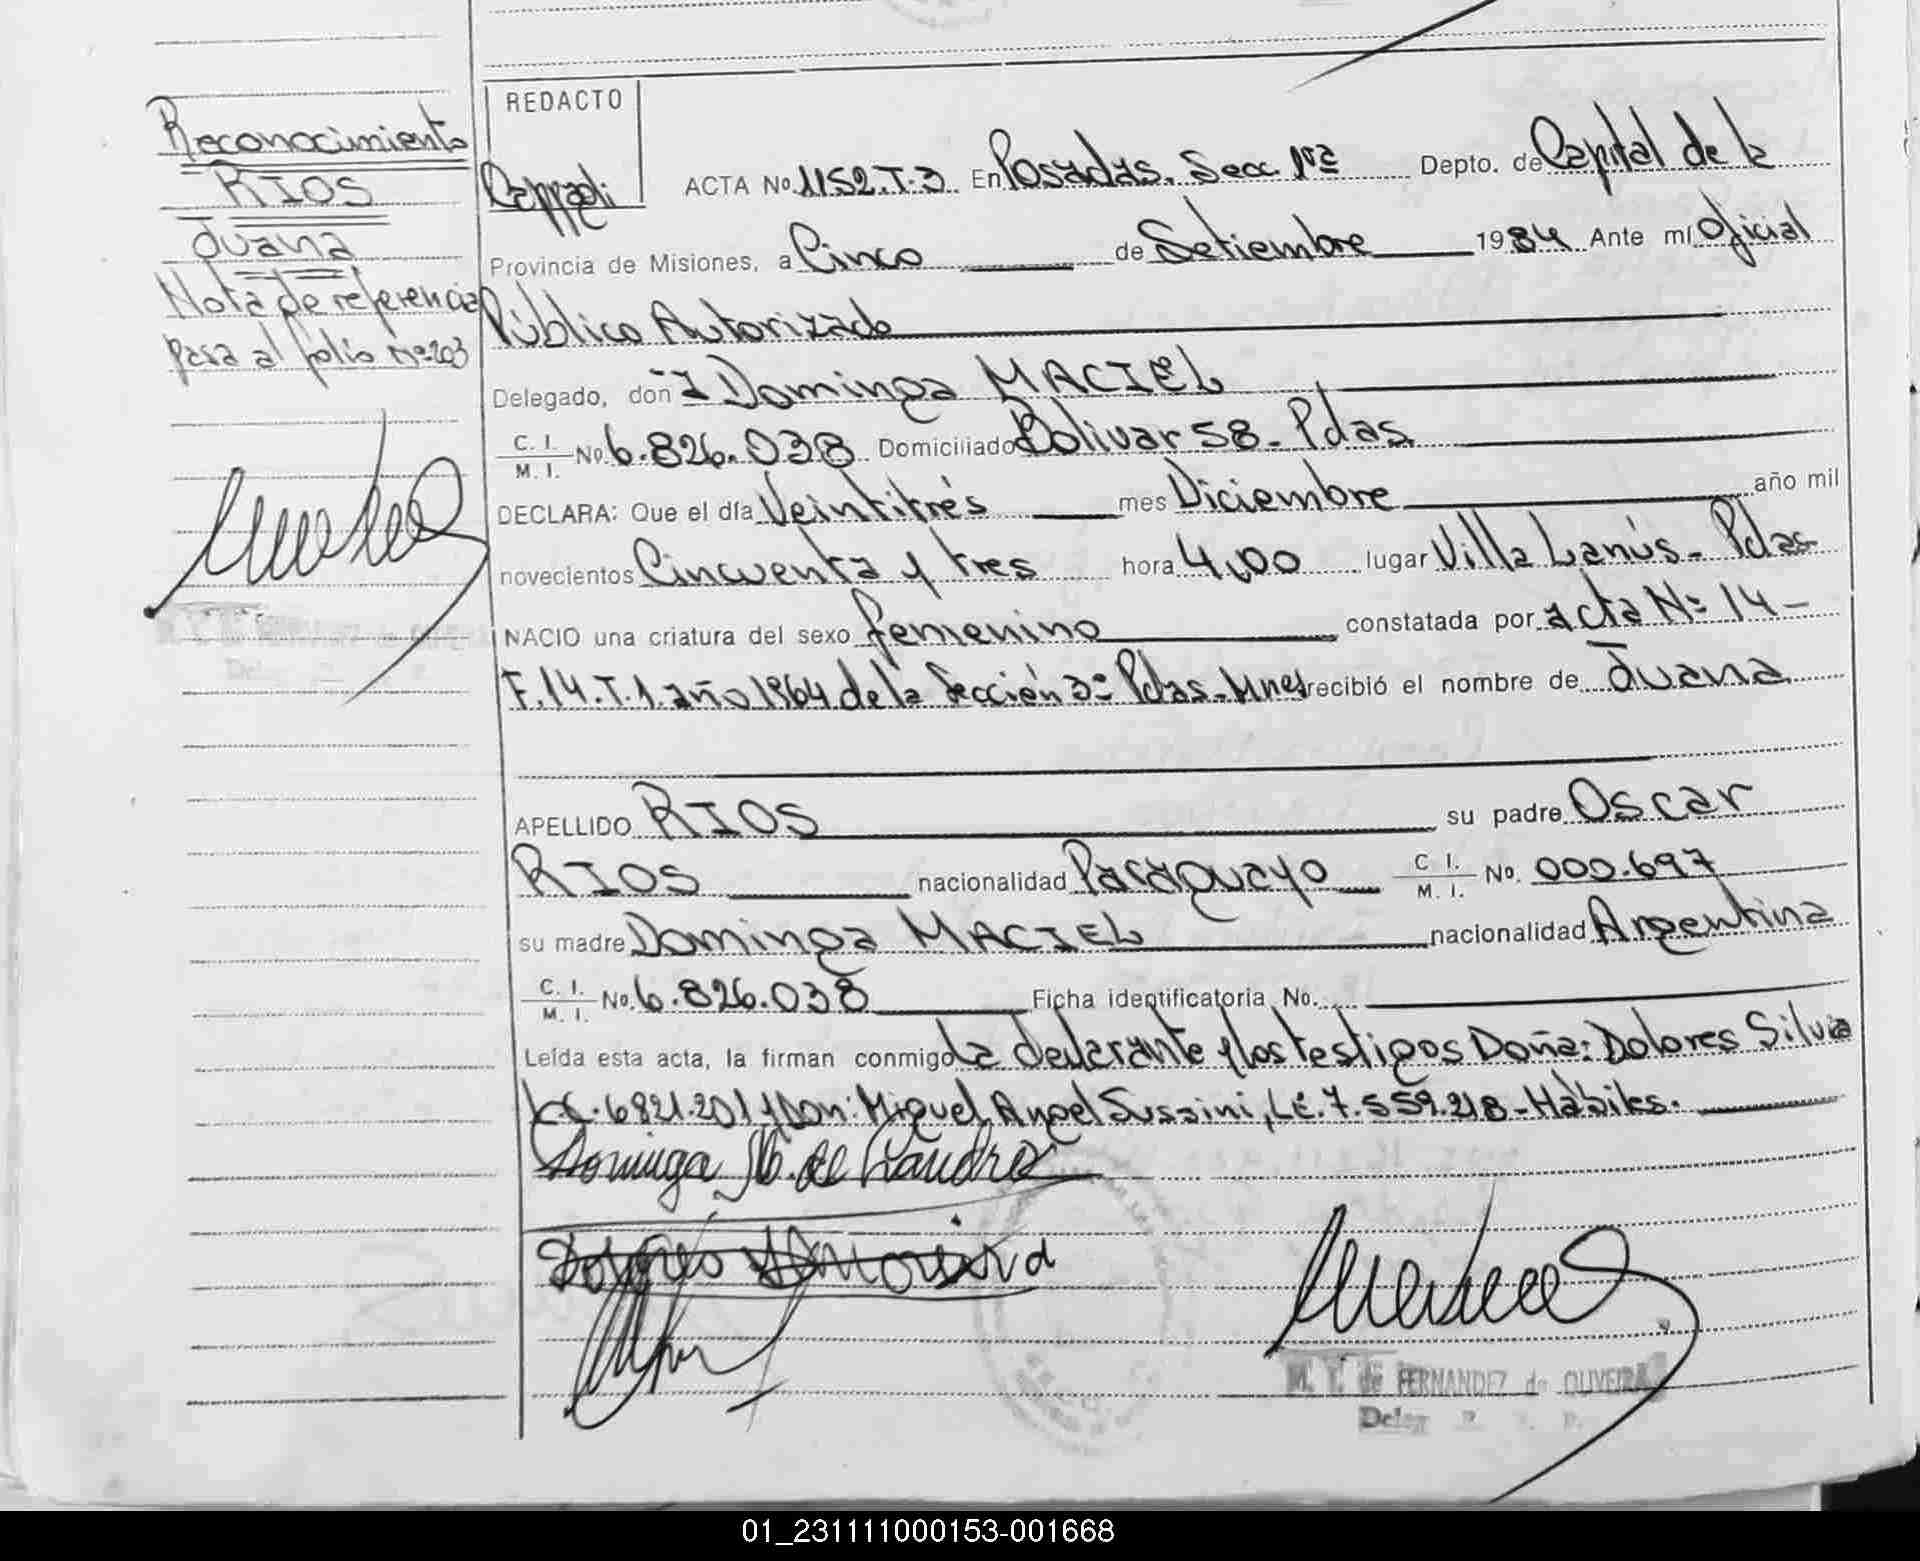 Reconocimiento
RIOS
Juana
Nota de referencia
pasa al folio Nº203
REDACTO
ACTA No 1152.T.3 En Posadas. Secc. 1ra Depto. de Capital de la
Provincia de Misiones, a Cinco de Setiembre 1984 Ante mí Oficial
Público Autorizado
Delegado, don a Dominga MACIEL
C. I.
M. I. No 6.826.038 Domiciliado Bolivar 58 - Pdas
DECLARA: Que el día Veintitrés mes Diciembre año mil
novecientos Cincuenta y tres hora 4,00 lugar Villa Lanús - Pdas-
NACIO una criatura del sexo femenino constatada por acta Nº 14 -
F.14.T.1. año 1964 de la Sección 3ª Pdas - Mnes recibió el nombre de Juana
APELLIDO RIOS su padre Oscar
RIOS nacionalidad Paraguayo C. I. M. I. No. 000.697
su madre Dominga MACIEL nacionalidad Argentina
C. I.
M. I. No. 6.826.038 Ficha identificatoria No.
Leída esta acta, la firman conmigo La declarante y los testigos Doña: Dolores Silvia
LC. 6821.201 y Don: Miguel Angel Sussini, LE. 7.559.218 - Hábiles.
Dominga M. de
M. T. de FERNANDEZ de OLIVEIRA
Deleg
01_231111000153-001668